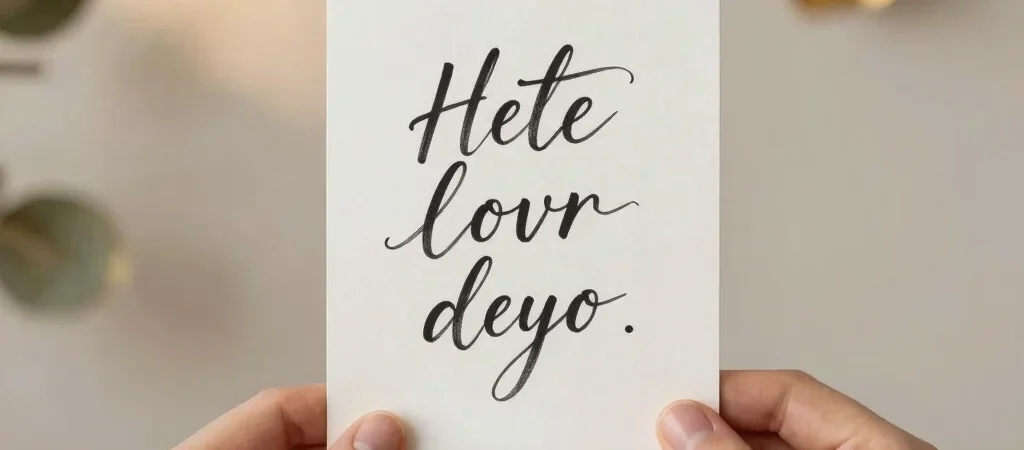 Hete
lovr
deyo.